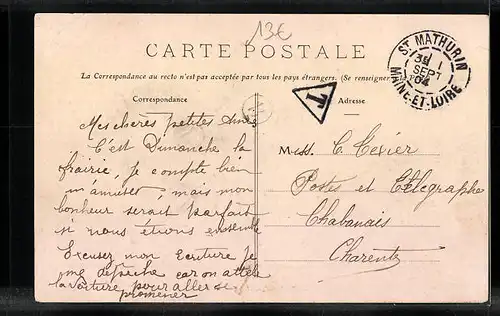 13€
CARTE POSTALE
La Correspondance au recto n'est pas acceptée par tous les pays étrangers. (Se renseigner
Correspondance
Adresse
T
ST MATHURIN
1
SEPT
04
MAINE-ET-LOIRE
Mes chères petites Amies
C'est Dimanche la
frairie, je compte bien
m'amuser, mais mon
bonheur serait parfait
si nous étions ensemble
Excusez mon Ecriture je
me dépêche car on attele
la voiture pour aller se
promener
Mess. C. Texier
Postes et Télégraphe
Chabanais
Charente